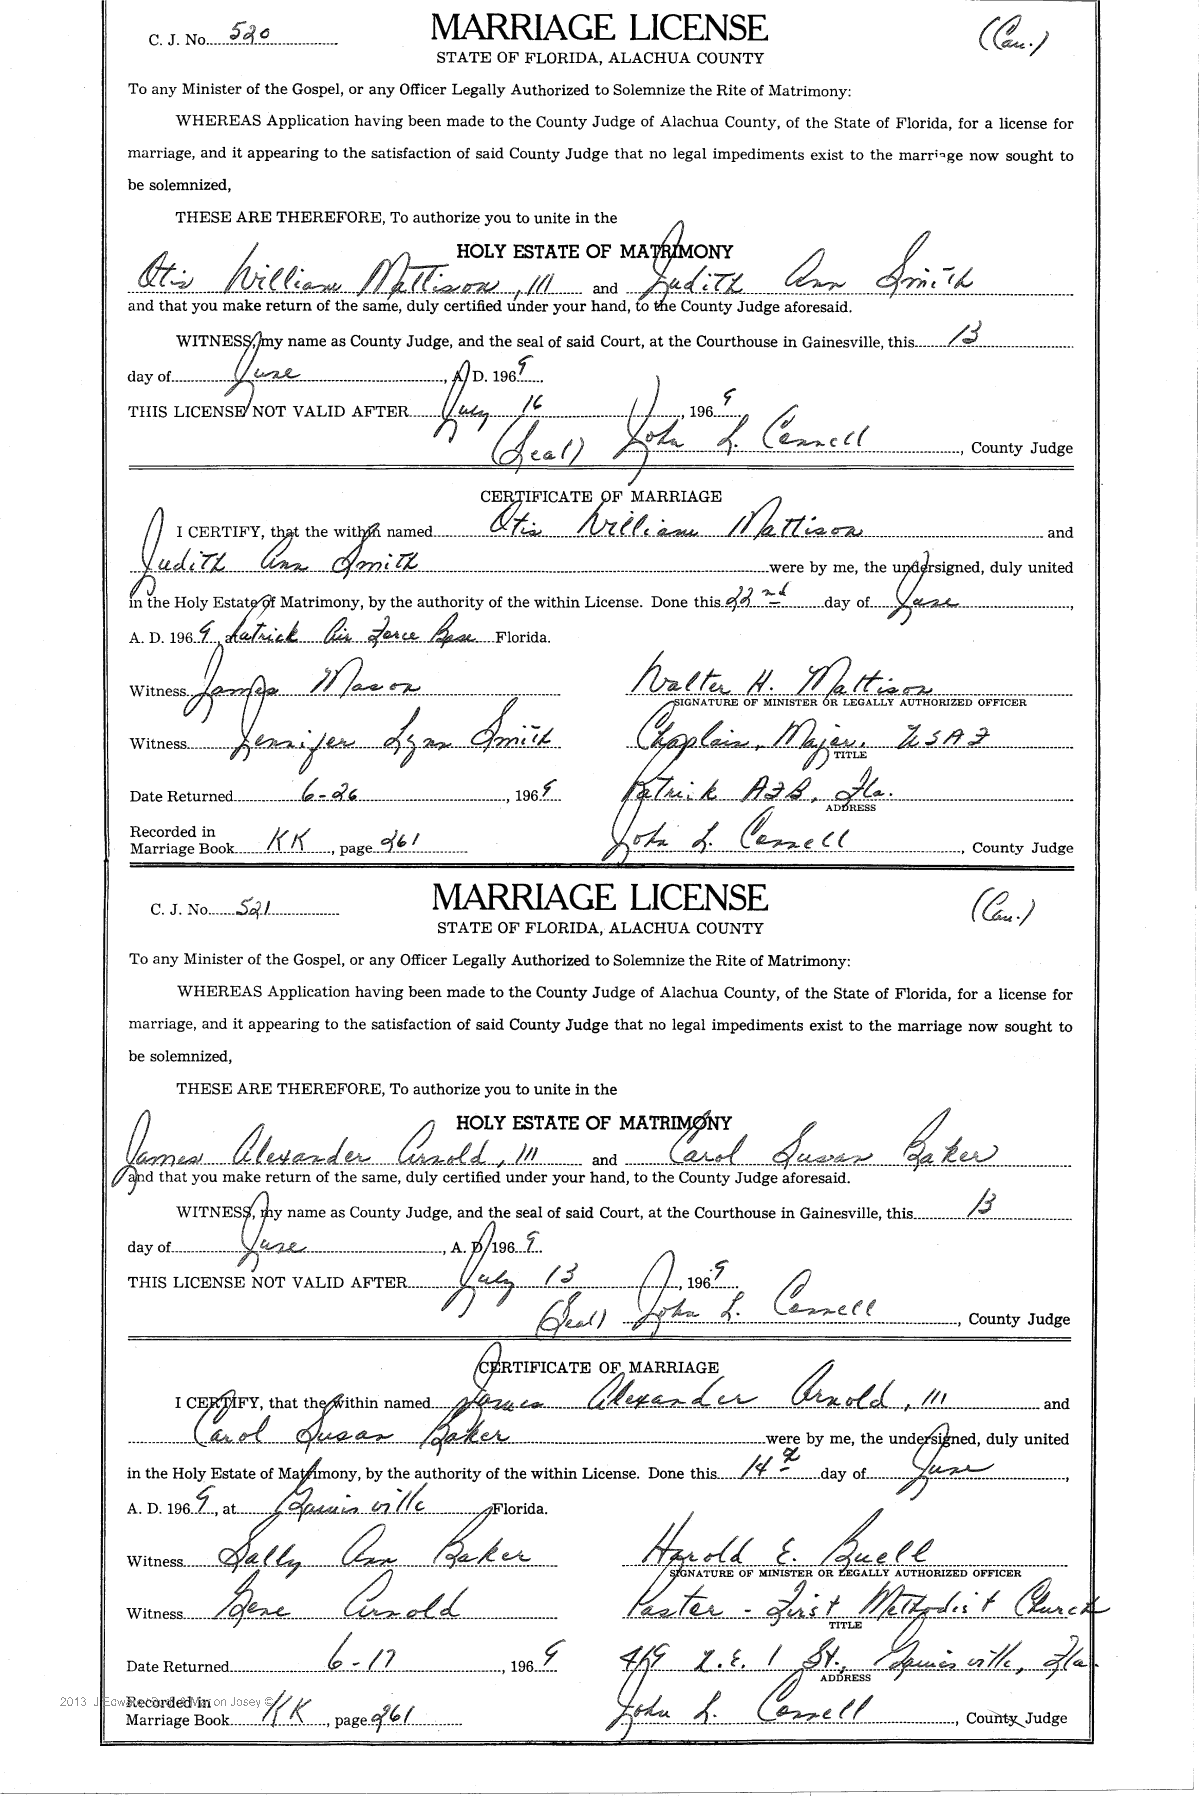 C. J. No. 520 MARRIAGE LICENSE (Cau.)
STATE OF FLORIDA, ALACHUA COUNTY
To any Minister of the Gospel, or any Officer Legally Authorized to Solemnize the Rite of Matrimony:
WHEREAS Application having been made to the County Judge of Alachua County, of the State of Florida, for a license for
marriage, and it appearing to the satisfaction of said County Judge that no legal impediments exist to the marriage now sought to
be solemnized,
THESE ARE THEREFORE, To authorize you to unite in the
HOLY ESTATE OF MATRIMONY
Otis William Mattison, III and Judith Ann Smith
and that you make return of the same, duly certified under your hand, to the County Judge aforesaid.
WITNESS, my name as County Judge, and the seal of said Court, at the Courthouse in Gainesville, this 13
day of June, A. D. 1969
THIS LICENSE NOT VALID AFTER July 16, 1969
(Seal) John L. Connell, County Judge
CERTIFICATE OF MARRIAGE
I CERTIFY, that the within named Otis William Mattison and
Judith Ann Smith were by me, the undersigned, duly united
in the Holy Estate of Matrimony, by the authority of the within License. Done this 22nd day of June,
A. D. 1969, Patrick Air Force Base Florida.
Witness James Mason Walter H. Mattison
SIGNATURE OF MINISTER OR LEGALLY AUTHORIZED OFFICER
Witness Jennifer Lynn Smith Chaplain, Major, USAF
TITLE
Date Returned 6-26, 1969 Patrick AFB, Fla.
ADDRESS
Recorded in
Marriage Book KK, page 261 John L. Connell, County Judge
C. J. No. 521 MARRIAGE LICENSE (Cau.)
STATE OF FLORIDA, ALACHUA COUNTY
To any Minister of the Gospel, or any Officer Legally Authorized to Solemnize the Rite of Matrimony:
WHEREAS Application having been made to the County Judge of Alachua County, of the State of Florida, for a license for
marriage, and it appearing to the satisfaction of said County Judge that no legal impediments exist to the marriage now sought to
be solemnized,
THESE ARE THEREFORE, To authorize you to unite in the
HOLY ESTATE OF MATRIMONY
James Alexander Arnold, III and Carol Susan Baker
and that you make return of the same, duly certified under your hand, to the County Judge aforesaid.
WITNESS, my name as County Judge, and the seal of said Court, at the Courthouse in Gainesville, this 13
day of June, A. D. 1969
THIS LICENSE NOT VALID AFTER July 13, 1969
(Seal) John L. Connell, County Judge
CERTIFICATE OF MARRIAGE
I CERTIFY, that the within named James Alexander Arnold, III and
Carol Susan Baker were by me, the undersigned, duly united
in the Holy Estate of Matrimony, by the authority of the within License. Done this 14th day of June,
A. D. 1969, at Gainesville Florida.
Witness Sally Ann Baker Harold E. Buell
SIGNATURE OF MINISTER OR LEGALLY AUTHORIZED OFFICER
Witness Gene Arnold Paster - First Methodist Church
TITLE
Date Returned 6-17, 1969 419 N.E. 1 St., Gainesville, Fla.
ADDRESS
Recorded in
Marriage Book KK, page 261 John L. Connell, County Judge
2013 Josey ©